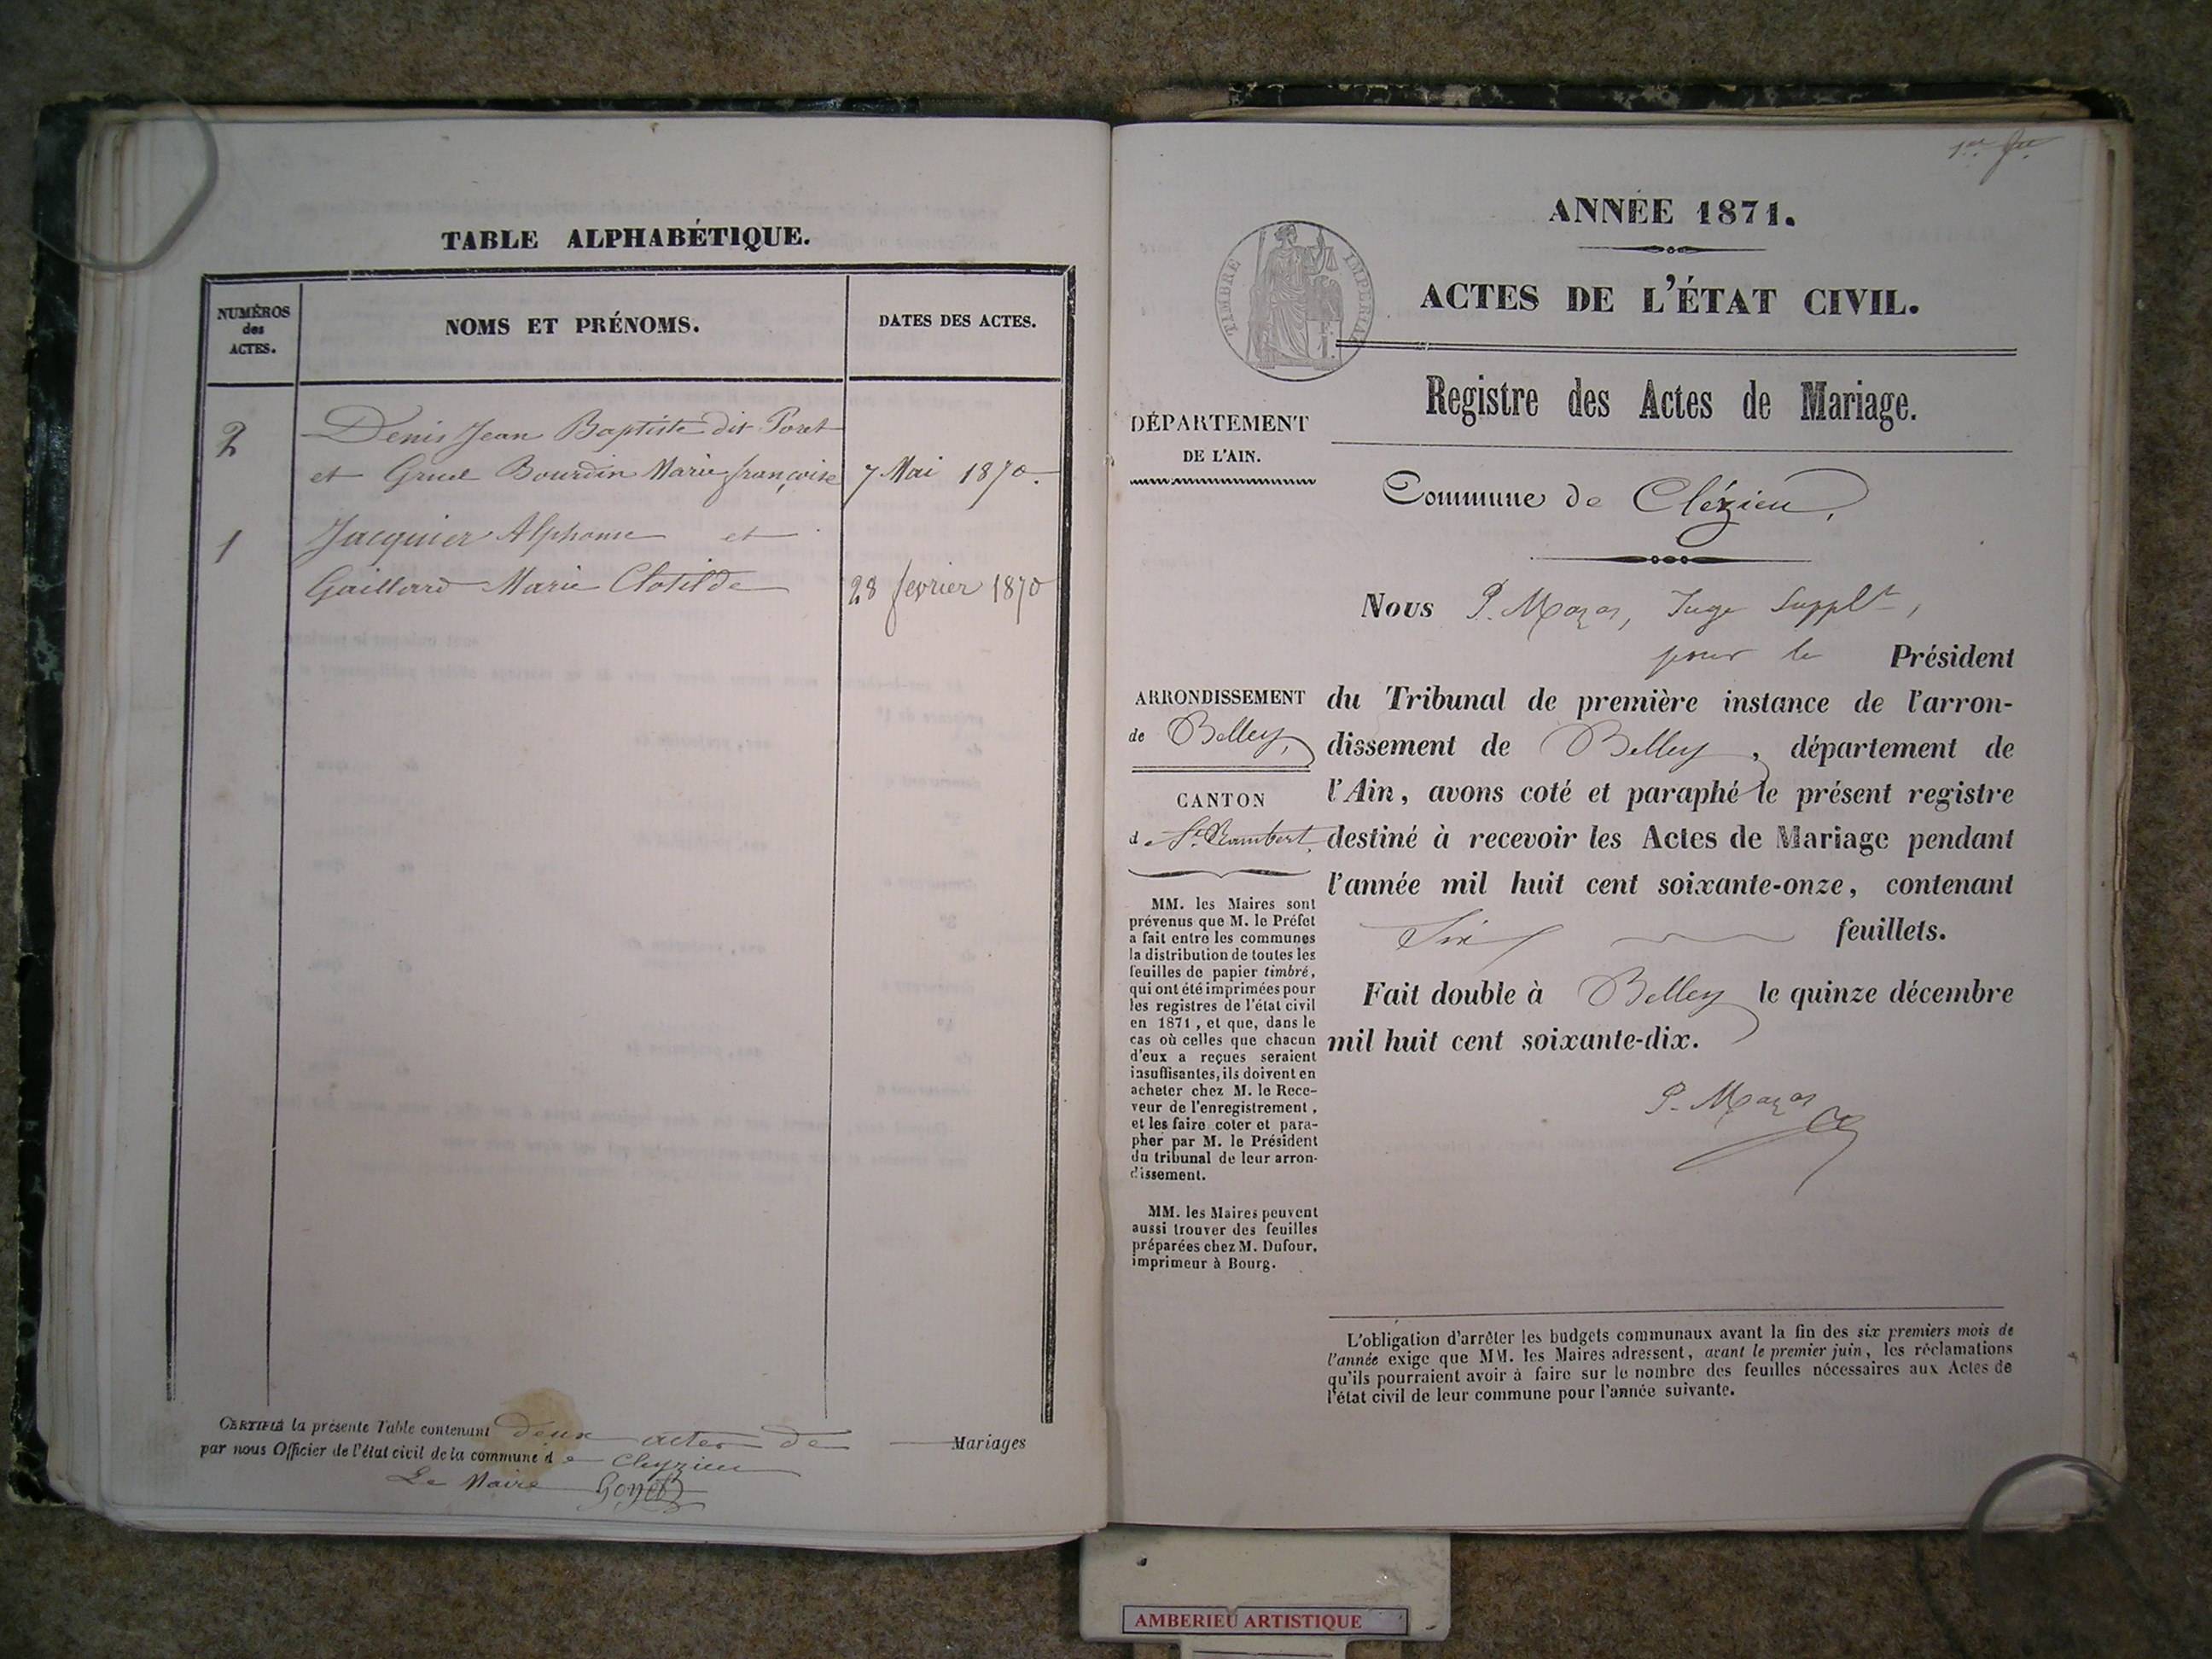 TABLE ALPHABÉTIQUE.
NUMÉROS
des
ACTES.
NOMS ET PRÉNOMS.
DATES DES ACTES.
2
Denis Jean Baptiste dit Poret
et Gruel Bourdin Marie françoise 7 Mai 1870.
1
Jacquier Alphonse et
Gaillard Marie Clotilde 28 fevrier 1870
CERTIFIÉ la présente Table contenant deux actes de Mariages
par nous Officier de l'état civil de la commune de Cleyzieu
Le Maire Goyet
ANNÉE 1871.
TIMBRE IMPERIAL
ACTES DE L'ÉTAT CIVIL.
Registre des Actes de Mariage.
DÉPARTEMENT
DE L'AIN.
Commune de Clézieu,
Nous P. Mazas, Juge Supplt,
pour le Président
ARRONDISSEMENT
de Belley,
CANTON
de St. Rambert
du Tribunal de première instance de l'arron-
dissement de Belley, département de
l'Ain, avons coté et paraphé le présent registre
destiné à recevoir les Actes de Mariage pendant
l'année mil huit cent soixante-onze, contenant
Six feuillets.
Fait double à Belley le quinze décembre
mil huit cent soixante-dix.
P. Mazas
MM. les Maires sont
prévenus que M. le Préfet
a fait entre les communes
la distribution de toutes les
feuilles de papier timbré,
qui ont été imprimées pour
les registres de l'état civil
en 1871, et que, dans le
cas où celles que chacun
d'eux a reçues seraient
insuffisantes, ils doivent en
acheter chez M. le Rece-
veur de l'enregistrement,
et les faire coter et para-
pher par M. le Président
du tribunal de leur arron-
dissement.
MM. les Maires peuvent
aussi trouver des feuilles
préparées chez M. Dufour,
imprimeur à Bourg.
L'obligation d'arrêter les budgets communaux avant la fin des six premiers mois de
l'année exige que MM. les Maires adressent, avant le premier juin, les réclamations
qu'ils pourraient avoir à faire sur le nombre des feuilles nécessaires aux Actes de
l'état civil de leur commune pour l'année suivante.
AMBERIEU ARTISTIQUE